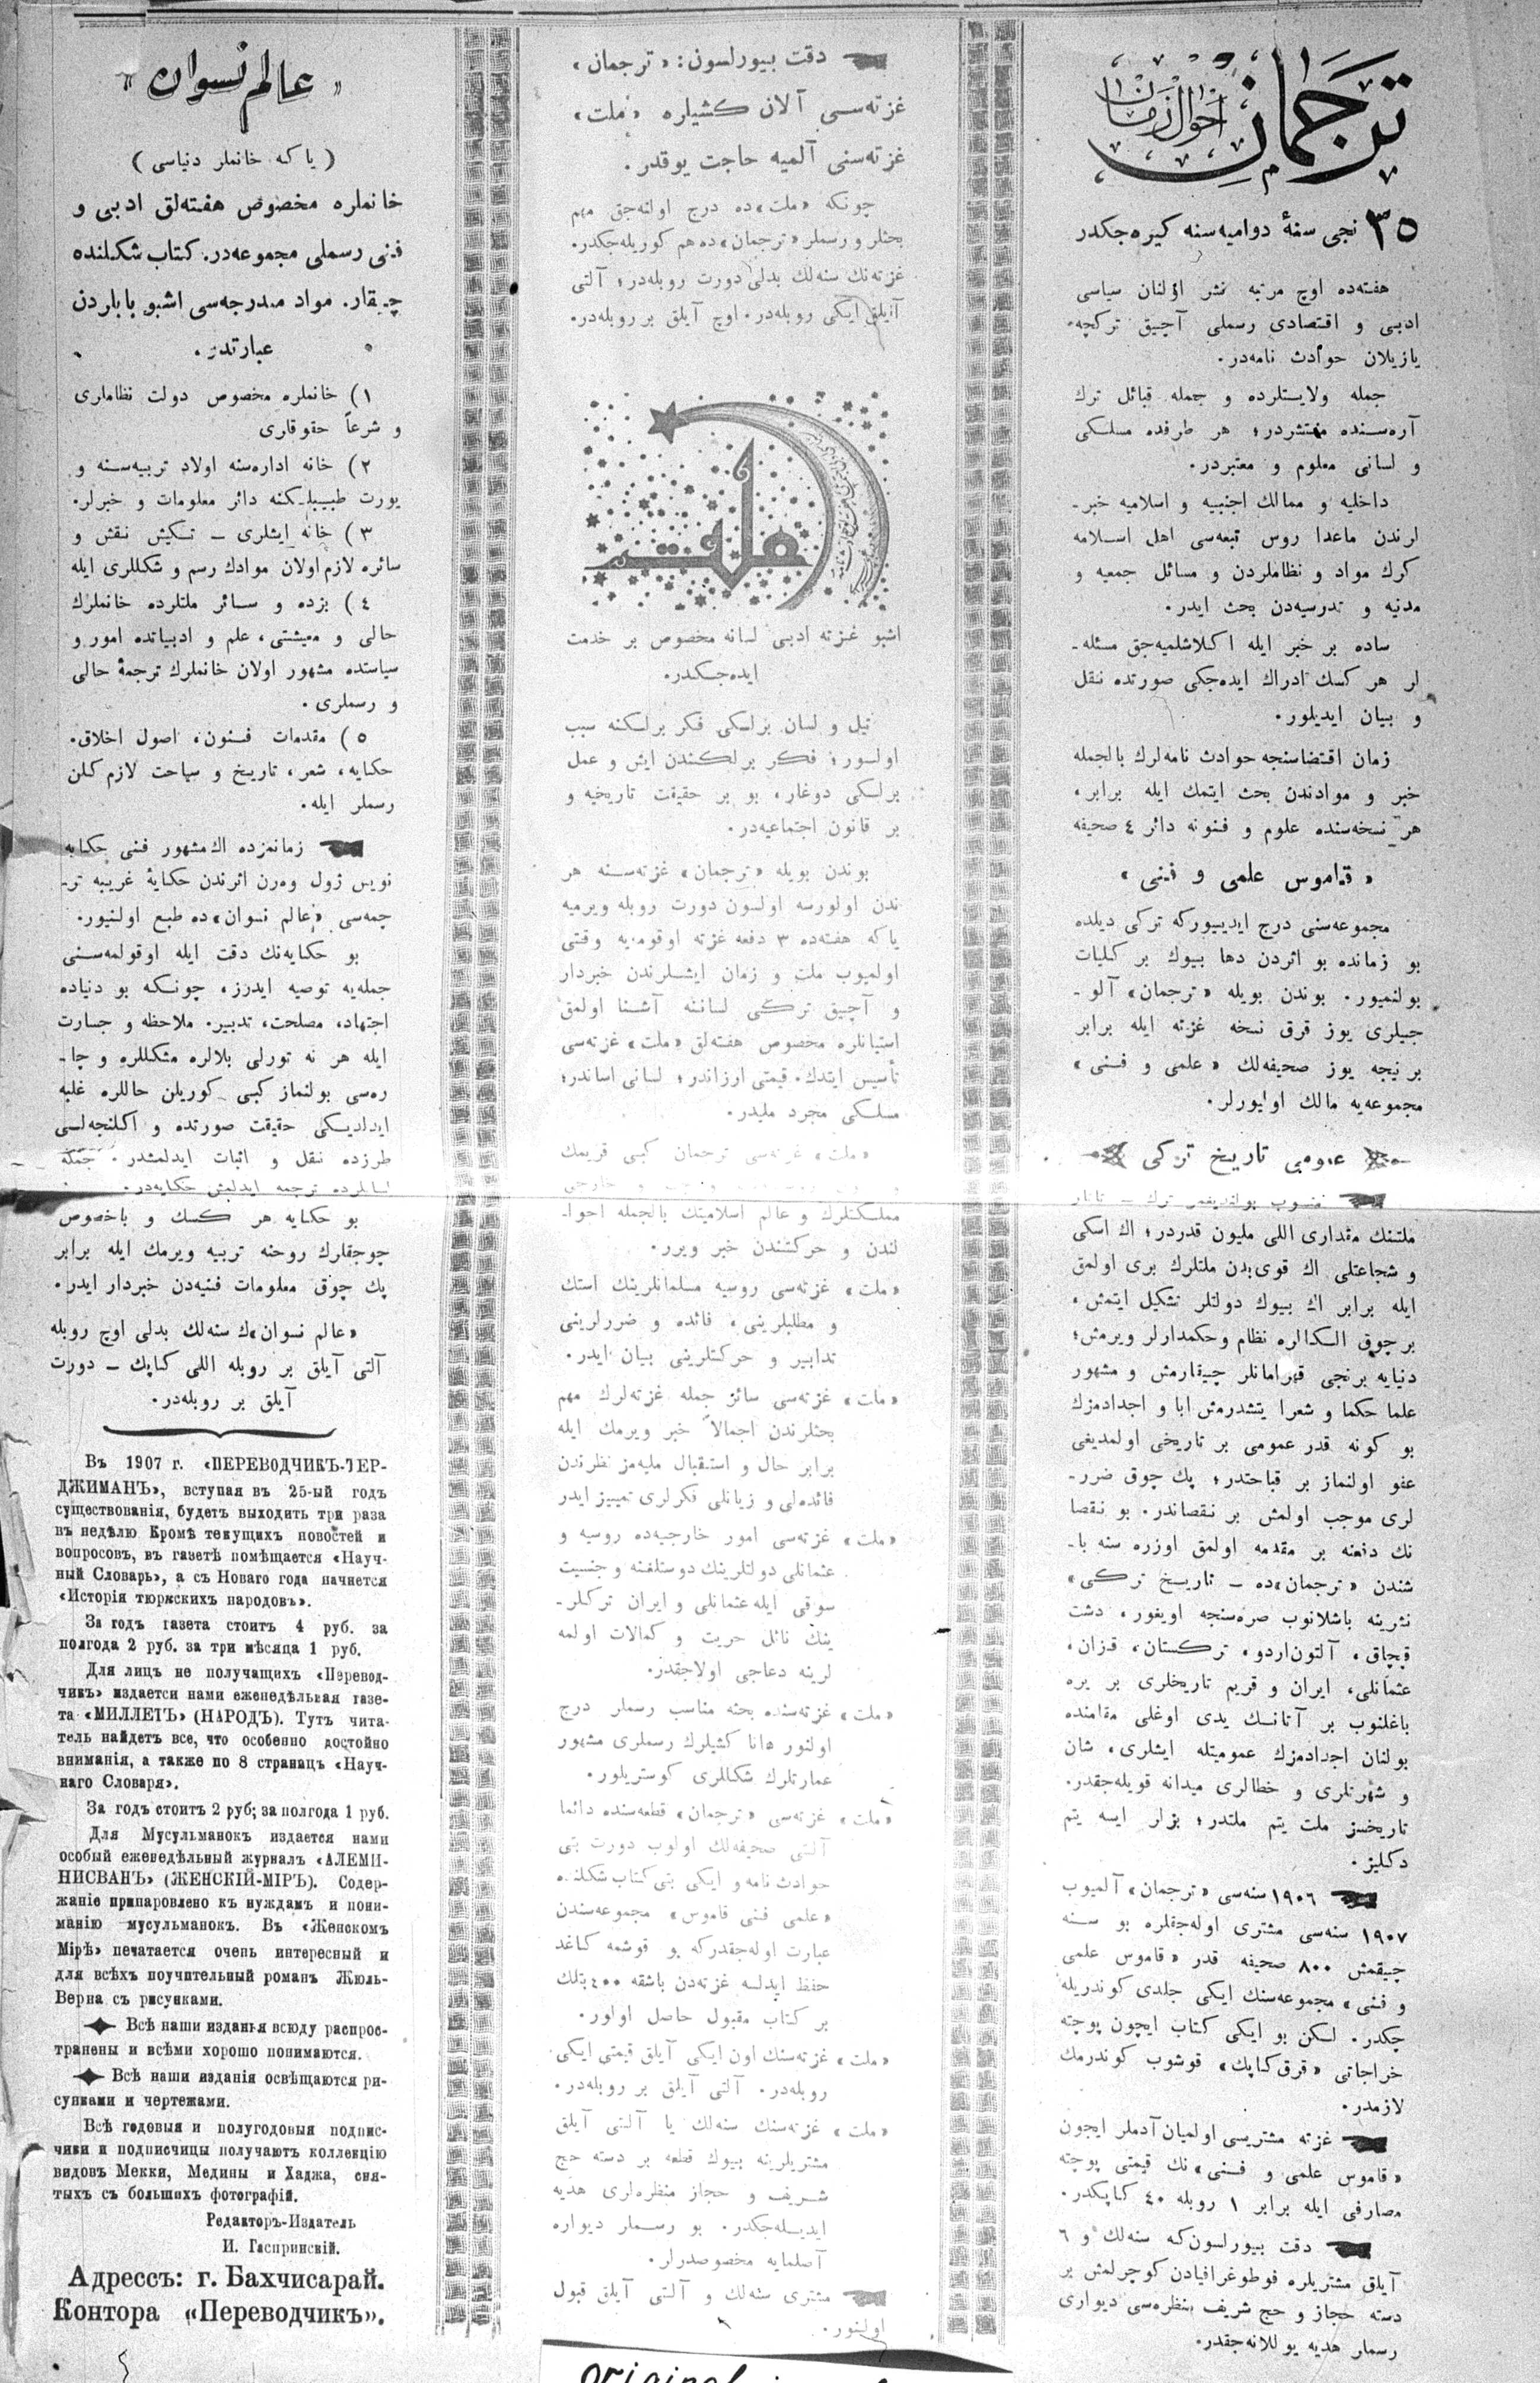 ترجمان
احوال زمان
٣٥ نجی سنهٔ دوامیه‌سنه کیره‌جکدر
هفته‌ده اوچ مرتبه نشر اؤلنان سیاسی
ادبی و اقتصادی رسملی آچیق ترکچه
یازیلان حوادث نامه‌در.
جمله ولایستلرده و جمله قبائل ترك
آره‌سنده منتشردر؛ هر طرفده مسلکی
و لسانی معلوم و معتبردر.
داخلیه و ممالك اجنبیه و اسلامیه خبر ـ
لرندن ماعدا روس تبعه‌سی اهل اسلامه
كرك مواد و نظاملردن و مسائل جمعیه و
مدنیه و تدرسیه‌دن بحث ایدر.
ساده بر خبر ایله اکلاشلمیه‌جق مسئله ـ
لر هر کسك ادراك ایده‌جکی صورتده نقل
و بیان ایدیلور.
زمان اقتضاسنجه حوادث نامه‌لرك بالجمله
خبر و موادندن بحث ایتمك ایله برابر،
هر نسخه‌سنده علوم و فنونه دائر ٤ صحیفه
« قاموس علمی و فنی »
مجموعه‌سنی درج ایدییورکه ترکی دیلده
بو زمانده بو اثردن دها بیوك بر کلیات
بولنمیور. بوندن بویله «ترجمان» آلو ـ
جیلری یوز قرق نسخه غزته ایله برابر
بر نیجه یوز صحیفه‌لك «علمی و فنی»
مجموعه‌یه مالك اولیورلر.
عمومی تاریخ ترکی
منسوب بولندیغمز ترك ـ تاتار
ملتنك مقداری اللی ملیون قدردر؛ اك اسکی
و شجاعتلی اك قوی‌بدن ملتلرك بری اولمق
ایله برابر اك بیوك دولتلر تشکیل ایتمش،
بر چوق السکالره نظام وحکمدارلر ویرمش؛
دنیایه برنجی قهرامانلر چیقارمش و مشهور
علما حکما و شعرا یتشدرمش ابا و اجدادمزك
بو کونه قدر عمومی بر تاریخی اولمدیغی
عفو اولنماز بر قباحتدر؛ پك چوق ضرر ـ
لری موجب اولمش بر نقصاندر. بو نقصا
نك دفعنه بر مقدمه اولمق اوزره سنه با ـ
شندن «ترجمان»ده ـ تاریخ ترکی»
نشرینه باشلانوب صره‌سنجه اویغور، دشت
قپچاق، آلتون‌اردو، ترکستان، قزان،
عثمانلی، ایران و قریم تاریخلری بر یره
باغلنوب بر آتانك یدی اوغلی مقامنده
بولنان اجدادمزك عمومیتله ایشلری، شان
و شهرتلری و خطالری میدانه قویله‌جقدر.
تاریخسز ملت یتم ملتدر؛ بزلر ایسه یتم
دکلیز.
١٩٠٦ سنه‌سی «ترجمان» آلمیوب
١٩٠٧ سنه‌سی مشتری اوله‌جقلره بو سنه
چیقمش ٨٠٠ صحیفه قدر «قاموس علمی
و فنی» مجموعه‌سنك ایکی جلدی کوندریله
جکدر. لکن بو ایکی کتاب ایچون پوچته
خراجاتی «قرق کاپك» قوشوب کوندرمك
لازمدر.
غزته مشتریسی اولمیان آدملر ایچون
«قاموس علمی و فنی»نك قیمتی پوچته
مصارفی ایله برابر ١ روبله ٤٠ کاپکدر.
دقت بیورلسون‌که سنه‌لك و ٦
آیلق مشتریلره فوطوغرافیادن کوچرلمش بر
دسته حجاز و حج شریف منظره‌سی دیواری
رسملر هدیه یوللانه‌جقدر.
دقت بیورلسون: «ترجمان»
غزته‌سی آلان کشیلره «ملت»
غزته‌سنی آلمیه حاجت یوقدر.
چونکه «ملت»ده درج اولنه‌جق مهم
بحثلر و رسملر «ترجمان»ده هم کوریله‌جکدر.
غزته‌نك سنه‌لك بدلی دورت روبله‌در؛ آلتی
آیلق ایکی روبله‌در. اوچ آیلق بر روبله‌در.
ملت
اشبو غزته ادبی لسانه مخصوص بر خدمت
ایده‌جکدر.
تیل و لسان برلسکی فکر برلسکنه سبب
اولسور؛ فکر برلکندن ایش و عمل
برلسکی دوغار، بو بر حقیقت تاریخیه و
بر قانون اجتماعیه‌در.
بوندن بویله «ترجمان» غزته‌سنه هر
ندن اولورسه اولسون دورت روبله ویرمیه
یاکه هفته‌ده ٣ دفعه غزته اوقومیه وقتی
اولمیوب ملت و زمان ایشلرندن خبردار
و آچیق ترکی لساننه آشنا اولمق
استیانلره مخصوص هفته‌لق «ملت» غزته‌سی
تأسیس ایتدك. قیمتی ارزاندر؛ لسانی اساندر؛
مسلکی مجرد ملیدر.
«ملت» غزته‌سی ترجمان کبی قریمك
مملکتلرك و عالم اسلامیتك بالجمله احوا ـ
لندن و حرکتندن خبر ویرر.
«ملت» غزته‌سی روسیه مسلمانلرینك استك
و مطلبلرینی، فائده و ضررلرینی
تدابیر و حرکتلرینی بیان ایدر.
«ملت» غزته‌سی سائر جمله غزته‌لرك مهم
بحثلرندن اجمالاً خبر ویرمك ایله
برابر حال و استقبال ملیه‌مز نظرندن
فائده‌لی و زیانلی فکرلری تمییز ایدر
«ملت» غزته‌سی امور خارجیه‌ده روسیه و
عثمانلی دولتلرینك دوستلغنه و جنسیت
سوقی ایله عثمانلی و ایران ترکلر ـ
ینك نائل حریت و کمالات اولمه
لرینه دعاجی اولاجقدر.
«ملت» غزته‌سنده بحثه مناسب رسملر درج
اولنور هانا کشیلرك رسملری مشهور
عمارتلرك شکللری کوستریلور.
«ملت» غزته‌سی «ترجمان» قطعه‌سنده دائما
آلتی صحیفه‌لك اولوب دورت بتی
حوادث نامه و ایکی بتی کتاب شکلنده
«علمی فنی قاموس» مجموعه‌سندن
عبارت اوله‌جقدرکه بو قوشمه کاغد
حفظ ایدلسه غزته‌دن باشقه ٤٠٠ بتلك
بر کتاب مقبول حاصل اولور.
«ملت» غزته‌سنك اون ایکی آیلق قیمتی ایکی
روبله‌در. آلتی آیلق بر روبله‌در.
«ملت» غزته‌سنك سنه‌لك یا آلتی آیلق
مشتریلرینه بیوك قطعه بر دسته حج
شریف و حجاز منظره‌لری هدیه
ایدیله‌جکدر. بو رسملر دیواره
آصلمایه مخصوصدرلر.
مشتری سنه‌لك و آلتی آیلق قبول
اولنور.
« عالم نسوان »
(یاکه خانملر دنیاسی)
خانملره مخصوص هفته‌لق ادبی و
فنی رسملی مجموعه‌در. کتاب شکلنده
چیقار. مواد مندرجه‌سی اشبو بابلردن
عبارتدر.
١) خانملره مخصوص دولت نظاملری
و شرعاً حقوقاری
٢) خانه اداره‌سنه اولاد تربیه‌سنه و
یورت طبیبلکنه دائر معلومات و خبرلر.
٣) خانه ایشلری ـ تکیش نقش و
سائره لازم اولان موادك رسم و شکللری ایله
٤) بزده و سائر ملتلرده خانملرك
حالی و معیشتی، علم و ادبیاتده امور و
سیاستده مشهور اولان خانملرك ترجمهٔ حالی
و رسملری.
٥) مقدمات فنون، اصول اخلاق.
حکایه، شعر، تاریخ و سیاحت لازم کلن
رسملر ایله.
زمانمزده اك مشهور فنی حکایه
نویس ژول وه‌رن اثرندن حکایهٔ غریبه تر ـ
جمه‌سی «عالم نسوان»ده طبع اولنیور.
بو حکایه‌نك دقت ایله اوقولمه‌سنی
جمله‌یه توصیه ایدرز، چونکه بو دنیاده
اجتهاد، مصلحت، تدبیر. ملاحظه و جسارت
ایله هر نه تورلی بلالره مشکللره و چا ـ
ره‌سی بولنماز کبی کوریلن حاللره غلبه
ایدلدیکی حقیقت صورتده و اکلنجه‌لی
طرزده نقل و اثبات ایدلمشدر. جمله
لسانلرده ترجمه ایدلمش حکایه‌در.
بو حکایه هر کسك و باخصوص
چوجقلرك روحنه تربیه ویرمك ایله برابر
پك چوق معلومات فنیه‌دن خبردار ایدر.
«عالم نسوان»ك سنه‌لك بدلی اوچ روبله
آلتی آیلق بر روبله اللی کاپك ـ دورت
آیلق بر روبله‌در.
Въ 1907 г. «ПЕРЕВОДЧИКЪ-ТЕР-
ДЖИМАНЪ», вступая въ 25-ый годъ
существованія, будетъ выходить три раза
въ недѣлю Кромѣ текущихъ новостей и
вопросовъ, въ газетѣ помѣщается «Науч-
ный Словарь», а съ Новаго года начнется
«Исторія тюркскихъ народовъ».
За годъ газета стоитъ 4 руб. за
полгода 2 руб. за три мѣсяца 1 руб.
Для лицъ не получащихъ «Перевод-
чикъ» издается нами еженедѣльная газе-
та «МИЛЛЕТЪ» (НАРОДЪ). Тутъ чита-
тель найдетъ все, что особенно достойно
вниманія, а также по 8 страницъ «Науч-
наго Словаря».
За годъ стоитъ 2 руб; за полгода 1 руб.
Для Мусульманокъ издается нами
особый еженедѣльный журналъ «АЛЕМИ-
НИСВАНЪ» (ЖЕНСКІЙ-МІРЪ). Содер-
жаніе припаровлено къ нуждамъ и пони-
манію мусульманокъ. Въ «Женскомъ
Мірѣ» печатается очень интересный и
для всѣхъ поучительный романъ Жюль-
Верна съ рисунками.
Всѣ наши изданья всюду распрос-
транены и всѣми хорошо понимаются.
Всѣ наши изданія освѣщаются ри-
сунками и чертежами.
Всѣ годовыя и полугодовыя подпис-
чики и подписчицы получаютъ коллекцію
видовъ Мекки, Медины и Хаджа, сня-
тыхъ съ большихъ фотографій.
Редакторъ-Издатель
И. Гаспринскій.
Адрессъ: г. Бахчисарай.
Контора «Переводчикъ».
original